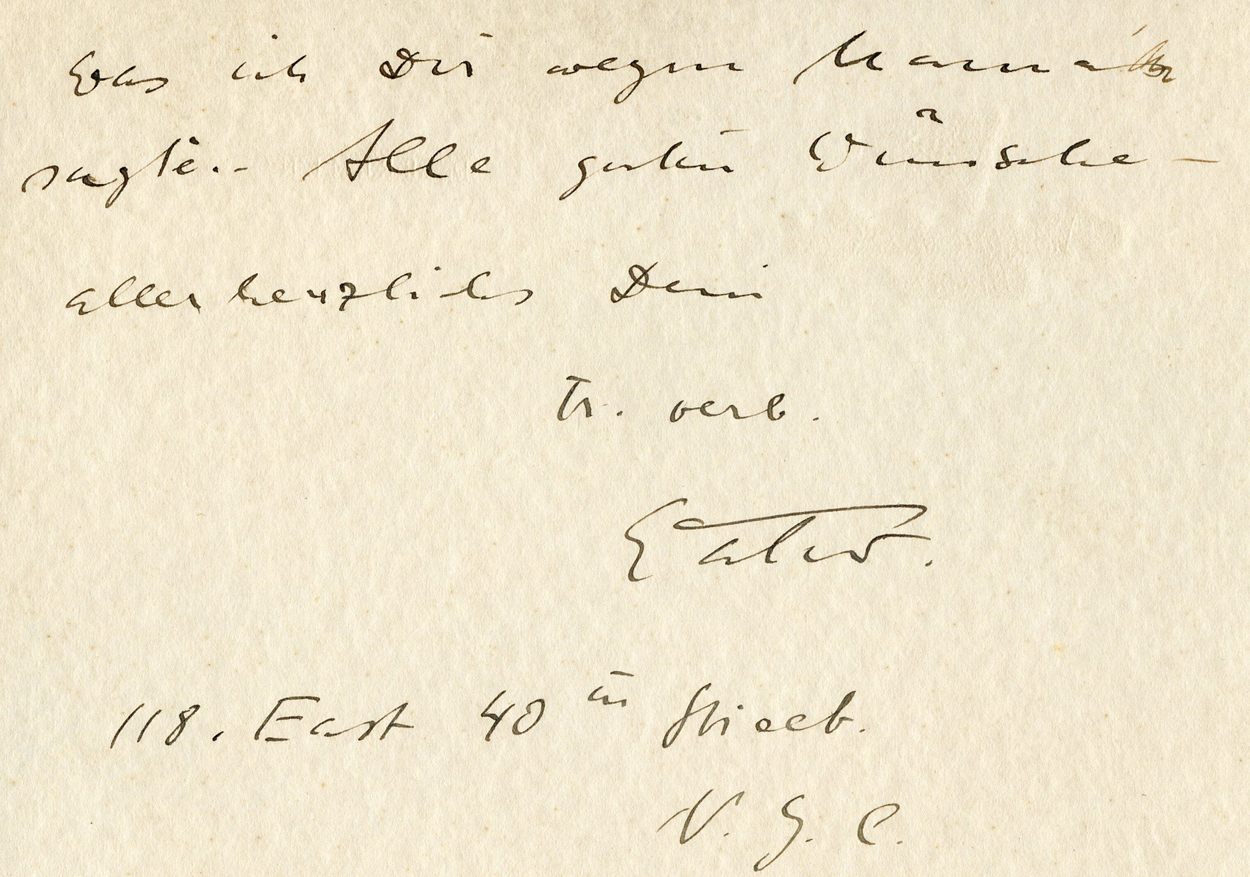 was ich Dir wegen Mama
sagte.. Alle guten Wünsche —
allerherzlichst Dein
tr. verb.
118. East 40th Street.
N. Y. C.